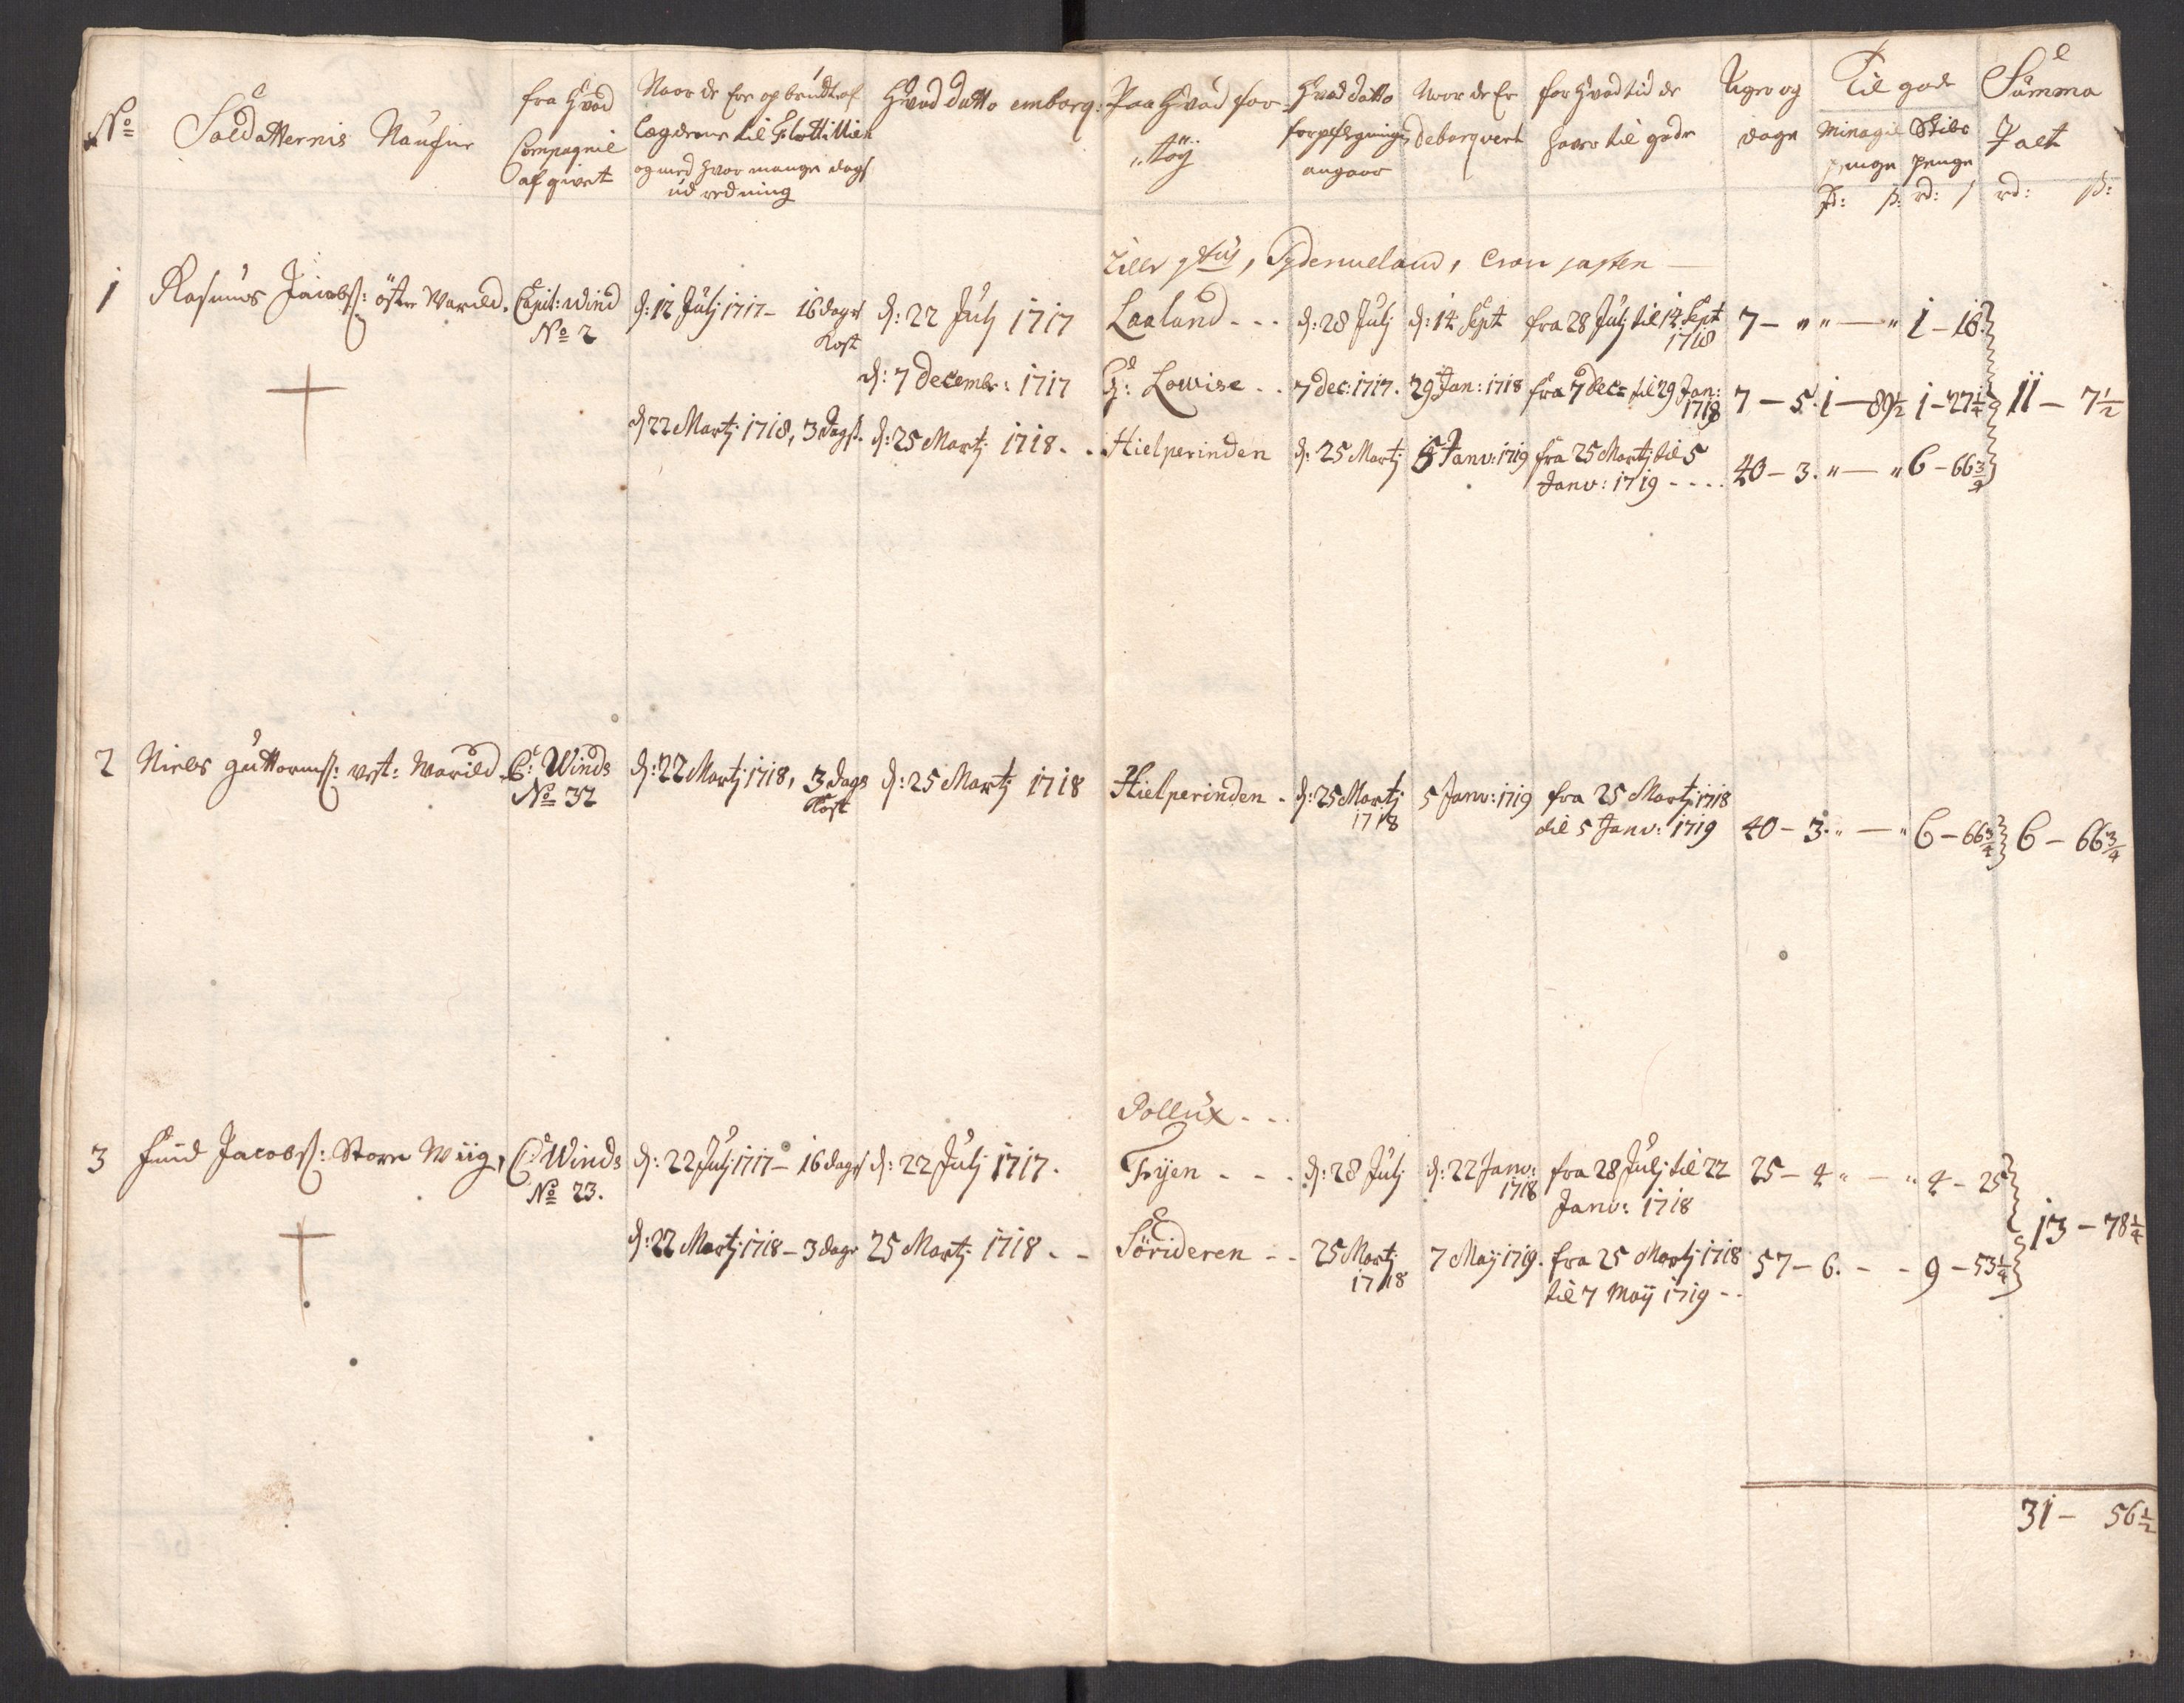 No
Soldatternis Naufne
fra Hvad
Compagnie
af givet
Naar de Ere op bendt af
Lægderne til Flottillien
og med hvor mange dags
ud redning
Hvad datto embarq:
Paa Hvad far
"töy
Hvad datto
forpflegning
angaar
Naar de Er
debarqvert
for hvad tid de
haver til gode
Uger og
dage
Til gode
Minagie
penge
Rd: ß:
penge
rd: ß
Summa
Talt
rd: ß:
Cron jagten
1 Rasmus Jacobß: öster Warild. Capit: Wind
No 2
d: 12 Julj 1717 - 16 dages
Kost
d: 22 Julj 1717
Laaland - - -
d: 28 Julj
d: 14 Sept
fra 28 Julj til 14 Sept
1718
7 - " " - " 1 - 16
d: 7 Decembr: 1717
P: Lowise - -
7 dec: 1717.
29 Jan: 1718
fra 7 dec: til 29 Jan:
1718
7 - 5. 1 - 89½ 1 - 27¼
11 - 7½
d 22 Martj 1718, 3 dagß.
d: 25 Martj 1718 - -
Hielperinden
d: 25 Martj
5 Janv: 1719
fra 25 Martj til 5
Janv: 1719 - - - -
40 - 3. " - " 6 - 66¾
2 Niels guttormß: vest: Warild. C: Winds
No 32
d: 22 Martj 1718, 3 dags
Kost
d: 25 Martj 1718
Hielperinden -
d: 25 Martj
1718
5 Janv: 1719
fra 25 Martj 1718
til 5 Janv: 1719
40 - 3. " - " 6 - 66¾
6 - 66¾
Pollux - - -
3 Jacobß: Store Wiig, C Winds
No 23.
d: 22 Julj 1717 - 16 dags
d: 22 Julj 1717.
Fyen - - -
d: 28 Julj
d: 22 Janv:
1718
fra 28 Julj til 22
Janv: 1718
25 - 4 " - " 4 - 25
d: 22 Martj 1718 - 3 dage
25 Martj 1718 - -
Söerideren - -
25 Martj
1718
7 Maij 1719.
fra 25 Martj 1718
til 7 Maij 1719 - -
57 - 6. - - 9 - 53¼
13 - 78¼
31 - 56½